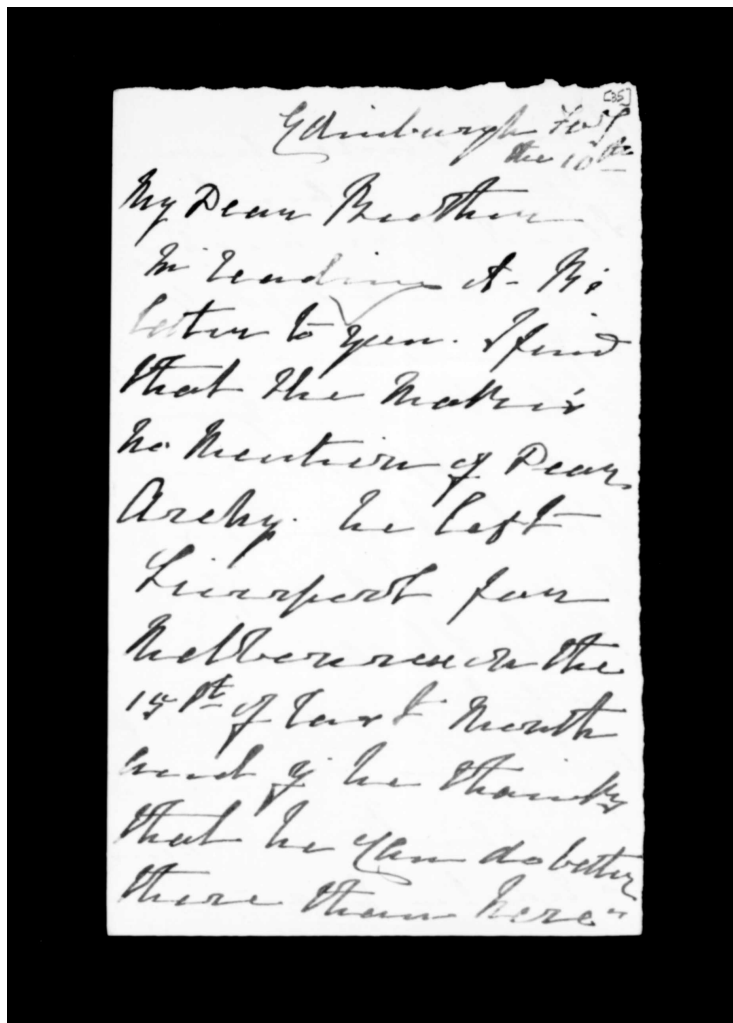 [35]
Edinburgh Feby
the 10th
My Dear Brother
In reading A. Mc
letter to you. I find
that the makes
no mention of Dear
Archy. he left
Liverpool for
Melbourne on the
15th of last Month
and if he thinks
that he Can do better
there than here